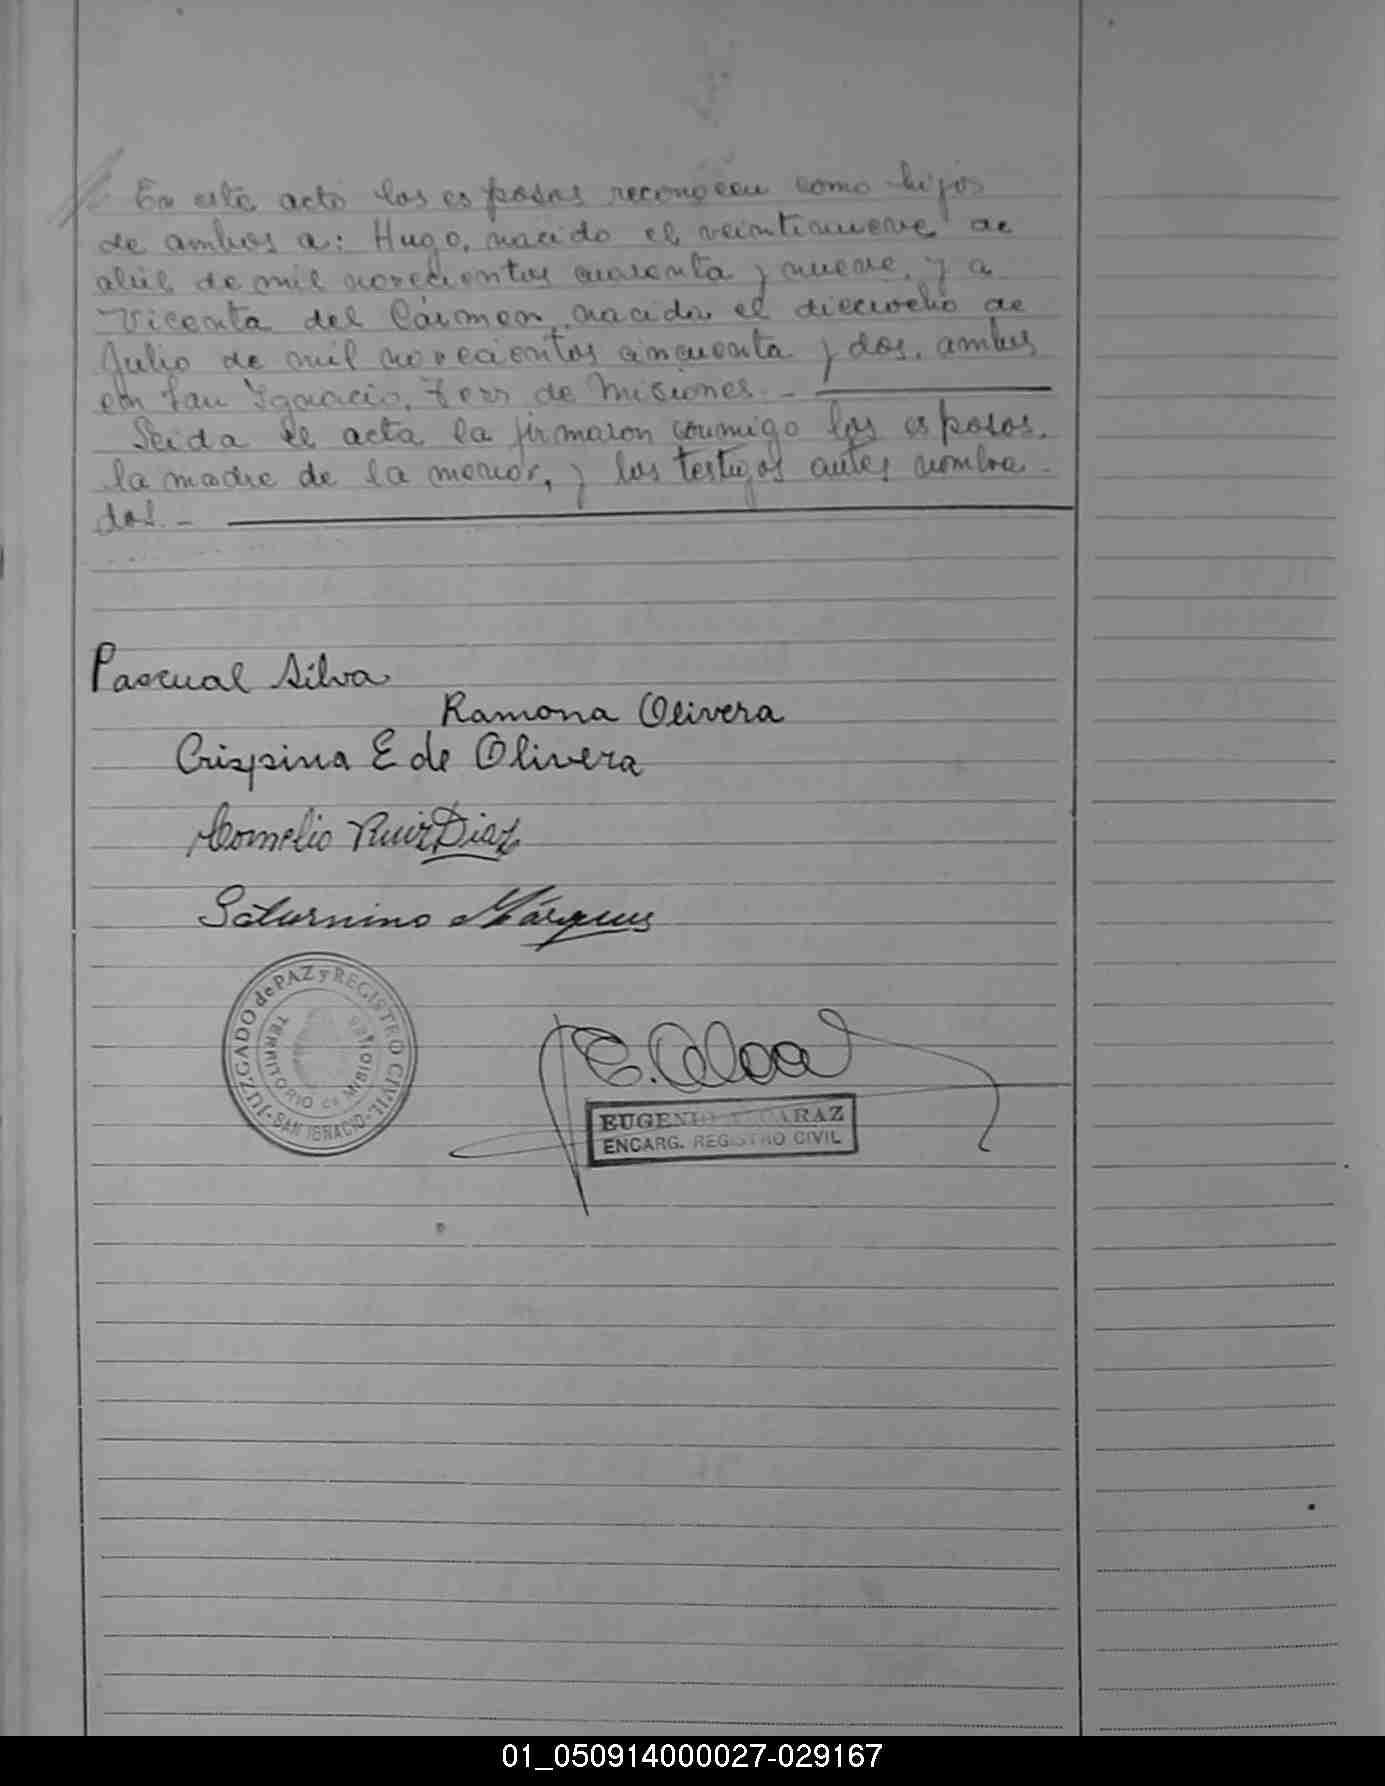 En este acto los esposos reconocen como hijos
de ambos a: Hugo, nacido el veintinueve de
abril de mil novecientos cuarenta y nueve, y a
Vicenta del Cármen, nacida el dieciocho de
Julio de mil novecientos cincuenta y dos, ambos
en San Ignacio, Terr de Misiones. -
Leida el acta la firmaron conmigo los esposos,
la madre de la menor, y los testigos antes nombra-
dos. -
Pascual Silva
Ramona Olivera
Crispina E de Olivera
Cornelio Ruiz Diaz
Saturnino Márques
JUZGADO de PAZ y REGISTRO CIVIL
TERRITORIO de MISIONES
SAN IGNACIO
EUGENIO ALCARAZ
ENCARG. REGISTRO CIVIL
01_050914000027-029167